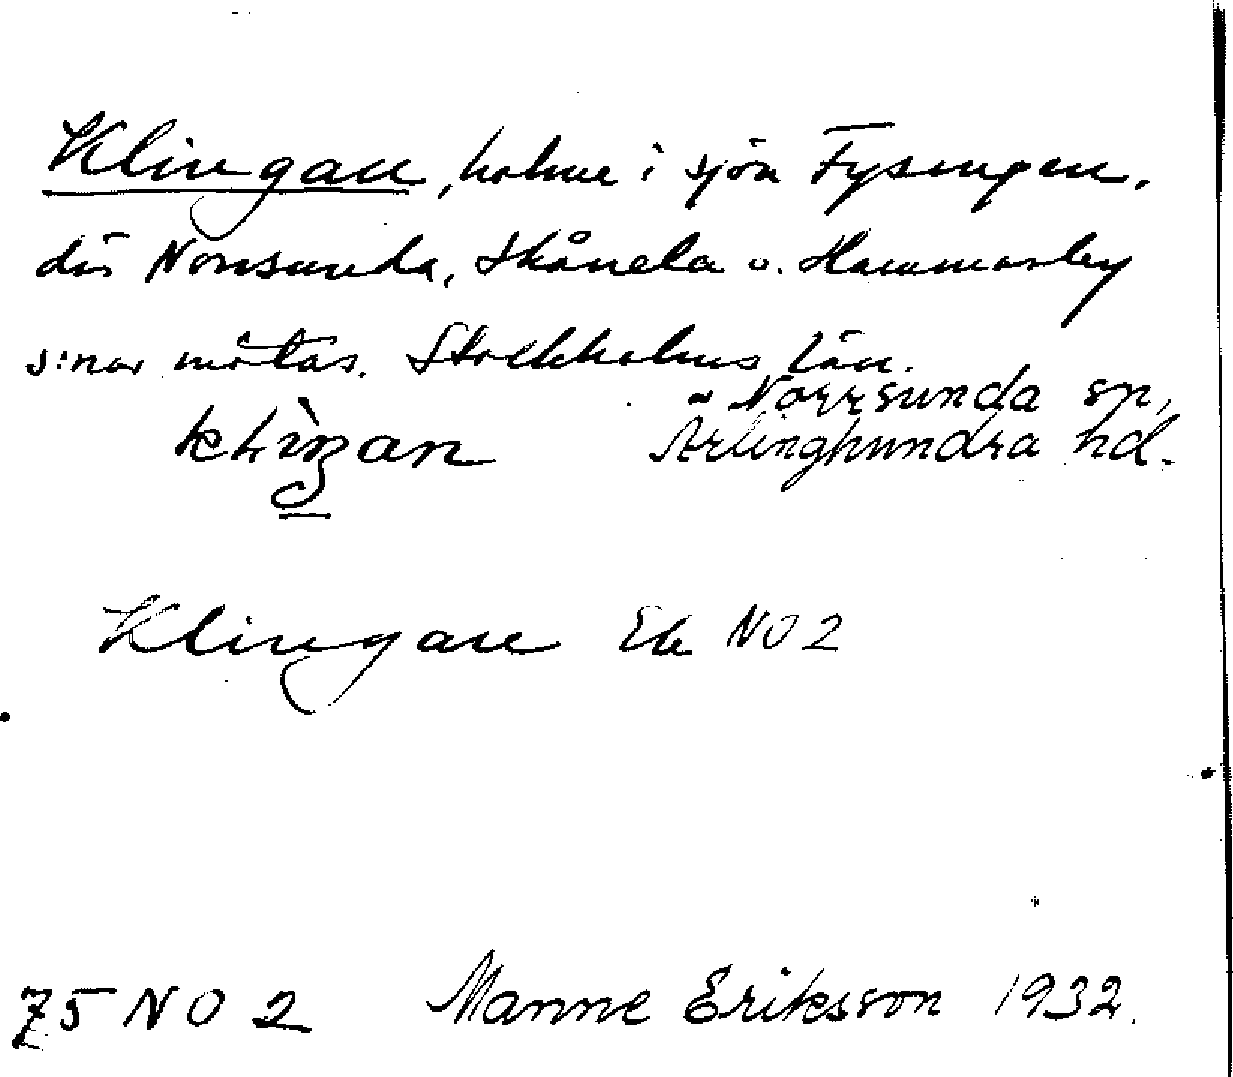 Klingan, holme i sjön Fysingen,
där Norrsunda, Skånela o. Hammarby
s:nar mötas. Stockholms län.
Norrsunda sn,
Ärlinghundra hd.
Klingan Ek NO 2
75 NO 2 Manne Eriksson 1932.